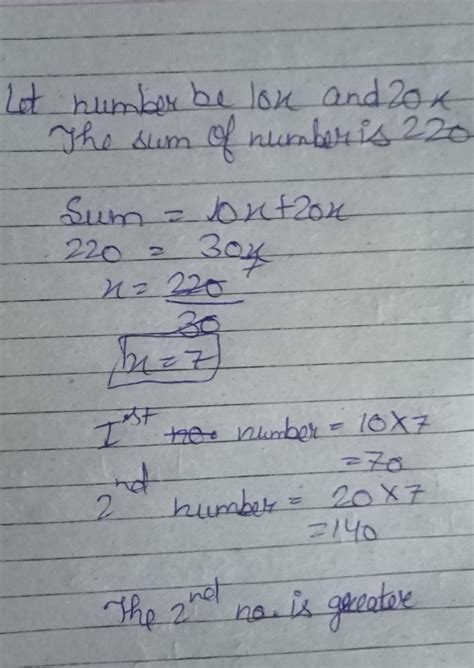 Let number be 10x and 20x
The sum of number is 220
Sum = 10x+20x
220 = 30x
7
x = 220
30
x = 7
Ist no. number = 10×7
=70
2nd number = 20×7
=140
The 2nd no. is greater